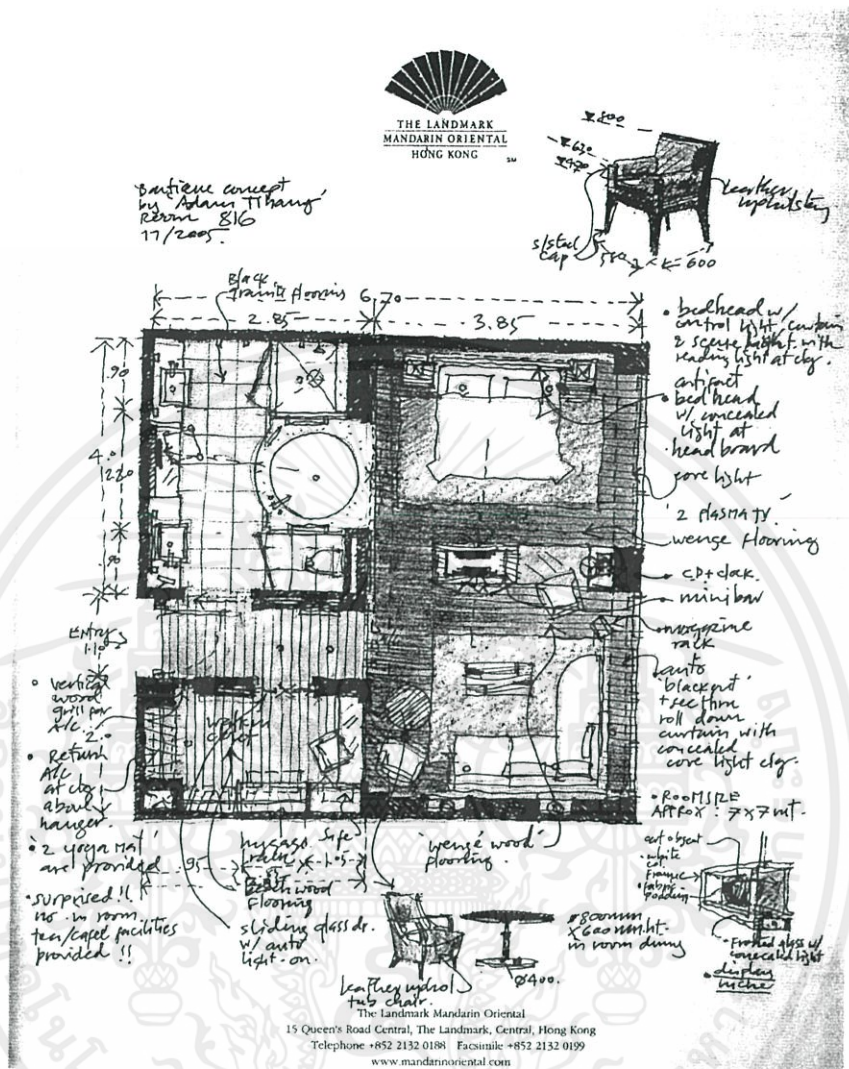 THE LANDMARK
MANDARIN ORIENTAL
HONG KONG
SM
Boutique concept
by 'Adam Tihany'
Room 816
17/2005.
▼800
▼630
▼420
leather
upholstery
s/steel
cap
600
Black
granite floorings
6.70
2.85
3.85
.90
4.0
1.10
• bedhead w/
control light, curtain
2 scene light with
reading light at clg.
• artifact
bed head
w/ concealed
light at
head board
cove light
'2 plasma TV.'
wenge floorings
CD + clock.
minibar
magazine
rack
auto
blackout
+ see thru
roll down
curtain with
concealed
cove light clg.
• ROOM SIZE
APPROX: 7x7 mt.
Entry
1.10
• vertical
wood
grill for
A/C.
2.0
• Return
A/C
at clg
above
hanger.
walk in
closet
• '2 yoga mat'
are provided
.95
luggage
rack
Safe
1.05
'wenge wood'
flooring.
Beechwood
flooring
• surprised!!
no in room
tea/coffee facilities
provided!!
sliding glass dr.
w/ auto
light-on.
leather uphol
tub chair.
ø800mm
x 600mm.ht.
in room dining
ø400.
art object
• white
col.
frame
• fabric
padding
• Frosted glass w/
concealed light
• display
niche
The Landmark Mandarin Oriental
15 Queen's Road Central, The Landmark, Central, Hong Kong
Telephone +852 2132 0188 Facsimile +852 2132 0199
www.mandarinoriental.com